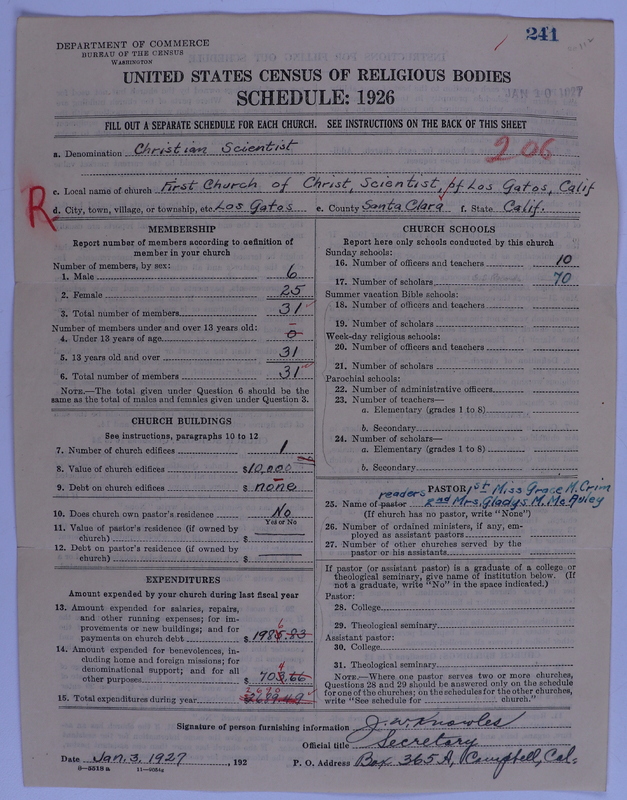 241
DEPARTMENT OF COMMERCE
BUREAU OF THE CENSUS
WASHINGTON
UNITED STATES CENSUS OF RELIGIOUS BODIES
SCHEDULE: 1926
FILL OUT A SEPARATE SCHEDULE FOR EACH CHURCH. SEE INSTRUCTIONS ON THE BACK OF THIS SHEET
a. Denomination Christian Scientist
206
c. Local name of church First Church of Christ, Scientist, of Los Gatos, Calif
R
d. City, town, village, or township, etc. Los Gatos e. County Santa Clara f. State Calif.
MEMBERSHIP
Report number of members according to definition of
member in your church
Number of members, by sex:
1. Male 6
2. Female 25
3. Total number of members 31
Number of members under and over 13 years old:
4. Under 13 years of age 0
5. 13 years old and over 31
6. Total number of members 31
NOTE.—The total given under Question 6 should be the
same as the total of males and females given under Question 3.
CHURCH BUILDINGS
See instructions, paragraphs 10 to 12
7. Number of church edifices 1
8. Value of church edifices $10,000
9. Debt on church edifices $ none
10. Does church own pastor's residence? No
Yes or No
11. Value of pastor's residence (if owned by
church) $
12. Debt on pastor's residence (if owned by
church) $
EXPENDITURES
Amount expended by your church during last fiscal year
13. Amount expended for salaries, repairs,
and other running expenses; for im-
provements or new buildings; and for
payments on church debt $ 1985.83
6
14. Amount expended for benevolences, in-
cluding home and foreign missions; for
denominational support; and for all
other purposes $ 703.66
4
15. Total expenditures during year
CHURCH SCHOOLS
Report here only schools conducted by this church
Sunday schools:
16. Number of officers and teachers 10
17. Number of scholars 70
Summer vacation Bible schools:
18. Number of officers and teachers
19. Number of scholars
Week-day religious schools:
20. Number of officers and teachers
21. Number of scholars
Parochial schools:
22. Number of administrative officers
23. Number of teachers—
a. Elementary (grades 1 to 8)
b. Secondary
24. Number of scholars—
a. Elementary (grades 1 to 8)
b. Secondary
PASTOR
readers 1st Miss Grace N. Crim
25. Name of pastor 2nd Mrs. Gladys M. McAuley
(If church has no pastor, write "None")
26. Number of ordained ministers, if any, em-
ployed as assistant pastors
27. Number of other churches served by the
pastor or his assistants
If pastor (or assistant pastor) is a graduate of a college or
theological seminary, give name of institution below. (If
not a graduate, write "No" in the space indicated.)
Pastor:
28. College
29. Theological seminary
Assistant pastor:
30. College
31. Theological seminary
NOTE.—Where one pastor serves two or more churches,
Questions 28 and 29 should be answered only on the schedule
for one of the churches; on the schedules for the other churches,
write "See schedule for church."
Signature of person furnishing information J. W. Knowles
Official title Secretary
Date Jan. 3, 1927, 192 P. O. Address Box 365 A, Campbell, Cal.
8-5518 a